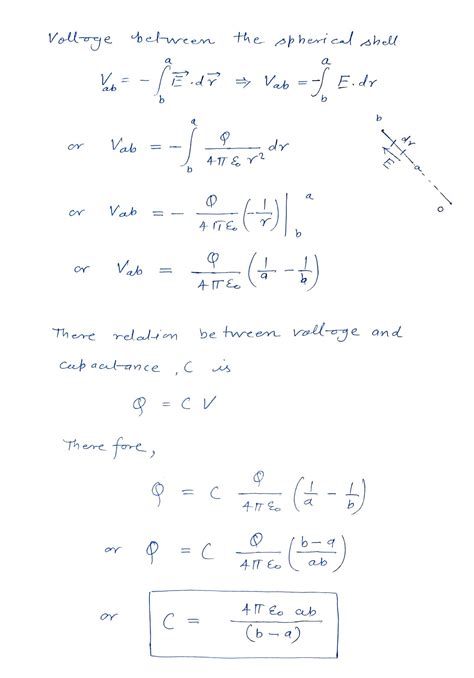 Voltage between the spherical shell
V_ab = - ∫_b^a E⃗ . dr⃗ ⇒ V_ab = - ∫_b^a E . dr
or V_ab = - ∫_b^a Q / (4πε₀ r²) dr
or V_ab = - Q / (4πε₀) (- 1/r) |_b^a
or V_ab = Q / (4πε₀) (1/a - 1/b)
b
dr
E
a
o
There relation between voltage and
capacitance, C is
Q = C V
There fore,
Q = C Q / (4πε₀) (1/a - 1/b)
or Q = C Q / (4πε₀) ((b-a) / ab)
or C = 4πε₀ ab / (b-a)